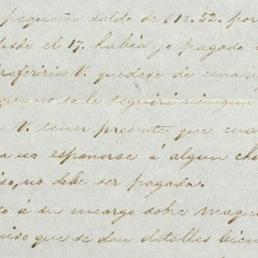 pequeño saldo de $18.52. por
desde el 17. habia yo pagado
preferiria V. quedase de
que no se le seguirá ningun
V. tener presente que
no esponerse á algun
no debe ser pagada.
á su encargo sobre
que se dan detalles bien